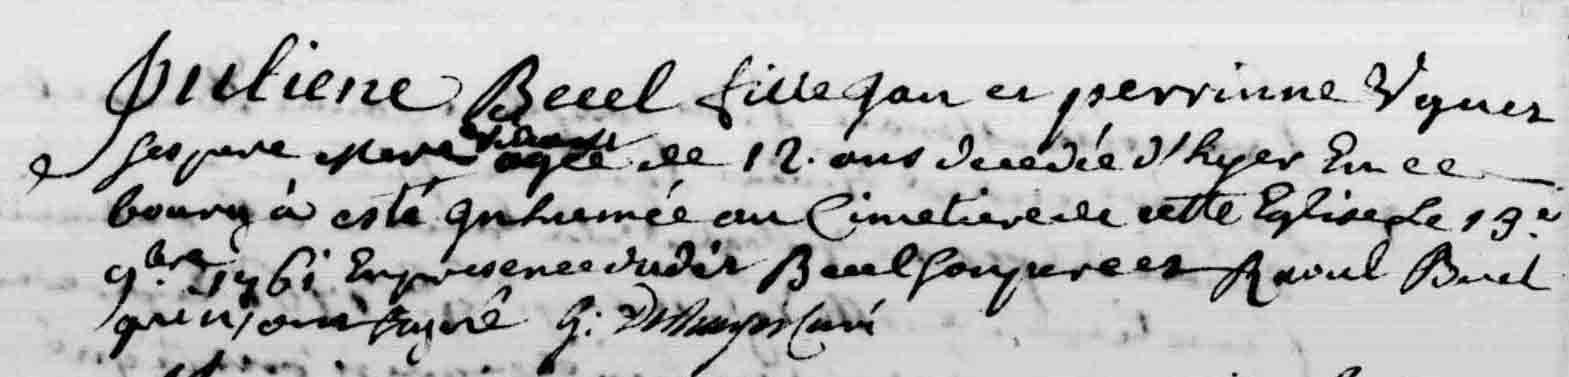 Juliene Becel fille Jan et perrinne Vguet
ses pere et Mere vivant agée de 12. ans decedée d'hyer En ce
bourg à esté Inhumée au Cimetiere de cette Eglise Le 13.e
9.bre 1761 En presence dudit Becel son pere et Raoul Becel
qui n'ont signé G: Curé